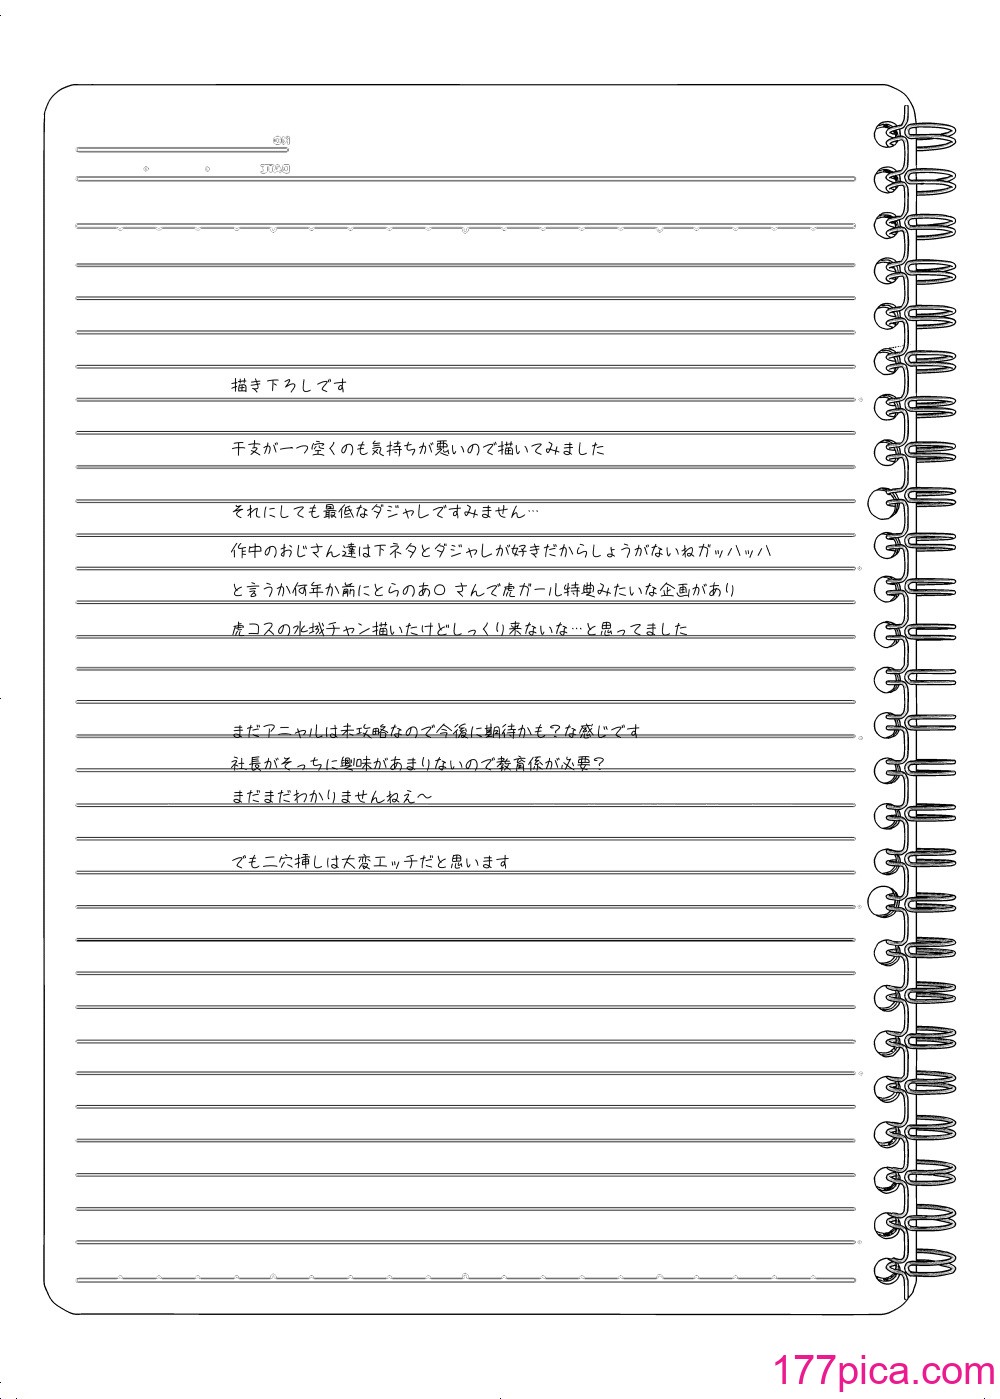 描き下ろしです
干支が一つ空くのも気持ちが悪いので描いてみました
それにしても最低なダジャレですみません…
作中のおじさん達は下ネタとダジャレが好きだからしょうがないねガッハッハ
と言うか何年か前にとらのあ〇 さんで虎ガール特典みたいな企画があり
虎コスの水城チャン描いたけどしっくり来ないな…と思ってました
まだアニャルは未攻略なので今後に期待かも?な感じです
社長がそっちに興味があまりないので教育係が必要?
まだまだわかりませんねえ〜
でも二穴挿しは大変エッチだと思います
177pica.com